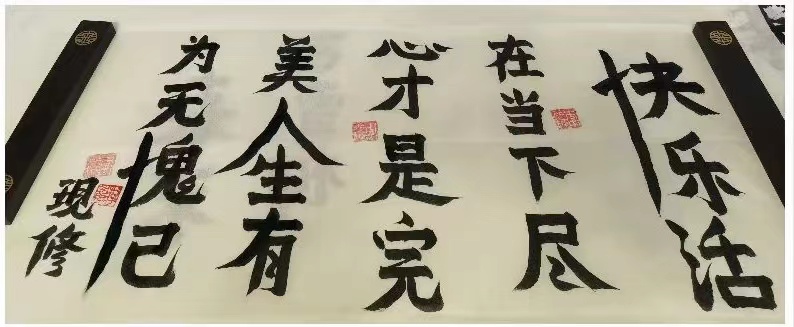 快乐活
在当下尽
心才是完
美人生有
为无愧己
现修